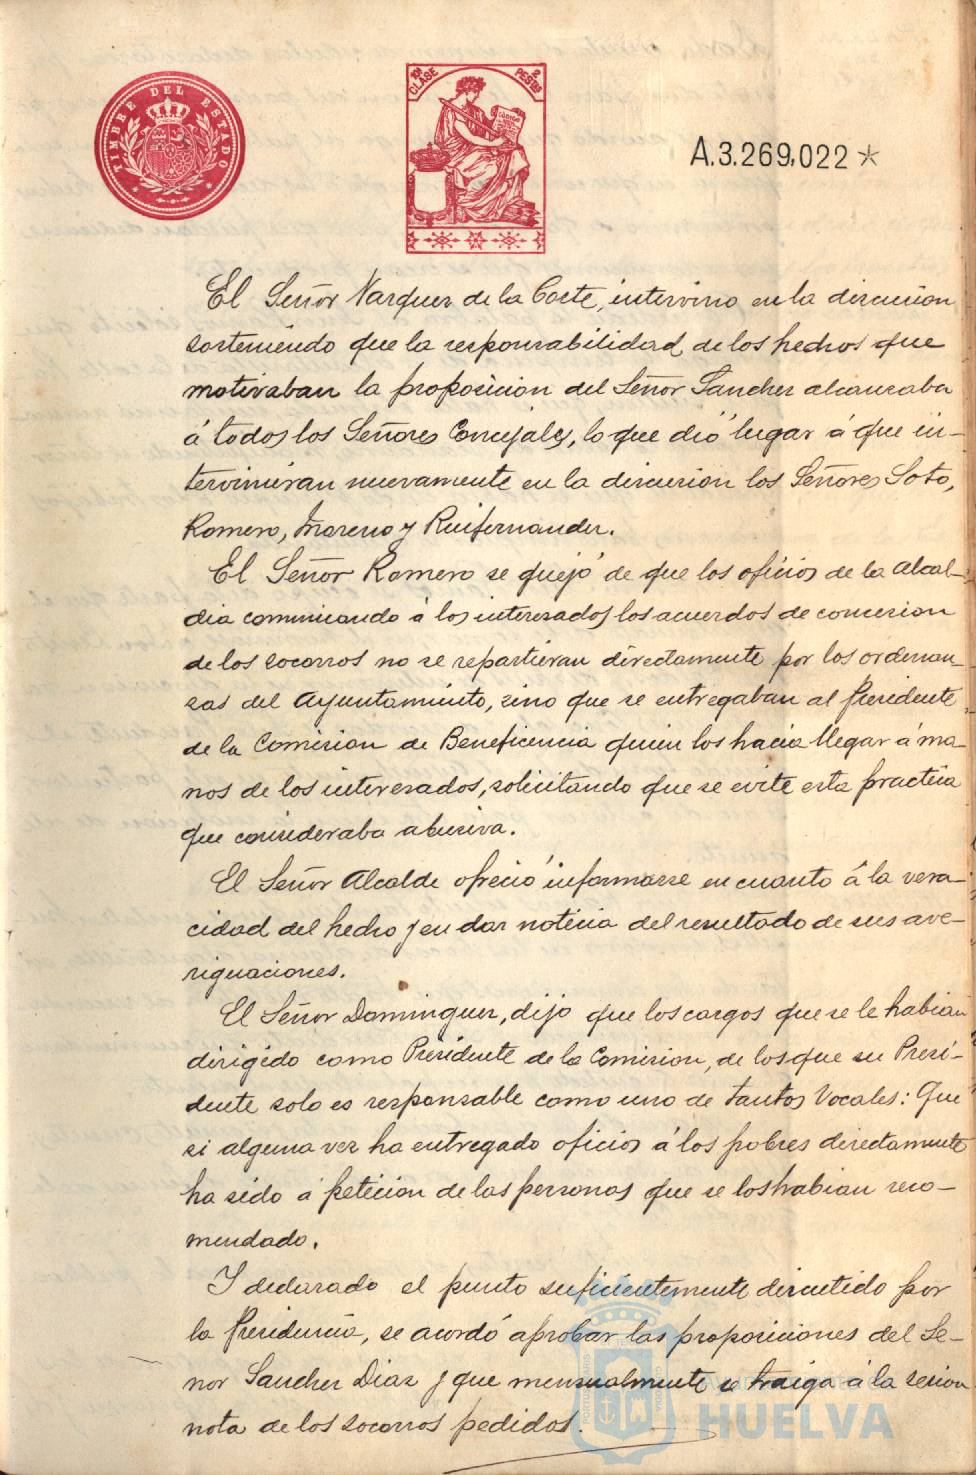 TIMBRE DEL ESTADO
10ª CLASE 2 PESTAS
A.3.269,022 *
El Señor Vazquez de la Corte, intervino en la discusion
sosteniendo que la responsabilidad de los hechos que
motivaban la proposicion del Señor Sanchez alcanzaba
á todos los Señores Concejales, lo que dió lugar á que in-
tervinieran nuevamente en la discusion los Señores Soto,
Romero, Moreno y Ruifernandez.
El Señor Romero se quejó de que los oficios de la Alcal-
dia comunicando á los interesados los acuerdos de concesion
de los socorros no se repartieran directamente por los ordenan-
zas del Ayuntamiento, sino que se entregaban al Presidente
de la Comision de Beneficencia quien los hacia llegar á ma-
nos de los interesados, solicitando que se evite esta practica
que consideraba abusiva.
El Señor Alcalde ofreció informarse en cuanto á la vera-
cidad del hecho y en dar noticia del resultado de sus ave-
riguaciones.
El Señor Dominguez, dijo que los cargos que se le habian
dirigido como Presidente de la Comision, de los que su Presi-
dente solo es responsable como uno de tantos Vocales: Que
si alguna vez ha entregado oficios á los pobres directamente
ha sido á peticion de las personas que se los habian reco-
mendado.
Y declarado el punto suficientemente discutido por
la Presidencia, se acordó aprobar las proposiciones del Se-
ñor Sanchez Diaz y que mensualmente se traiga á la sesion
nota de los socorros pedidos.
Ayuntamiento de
HUELVA